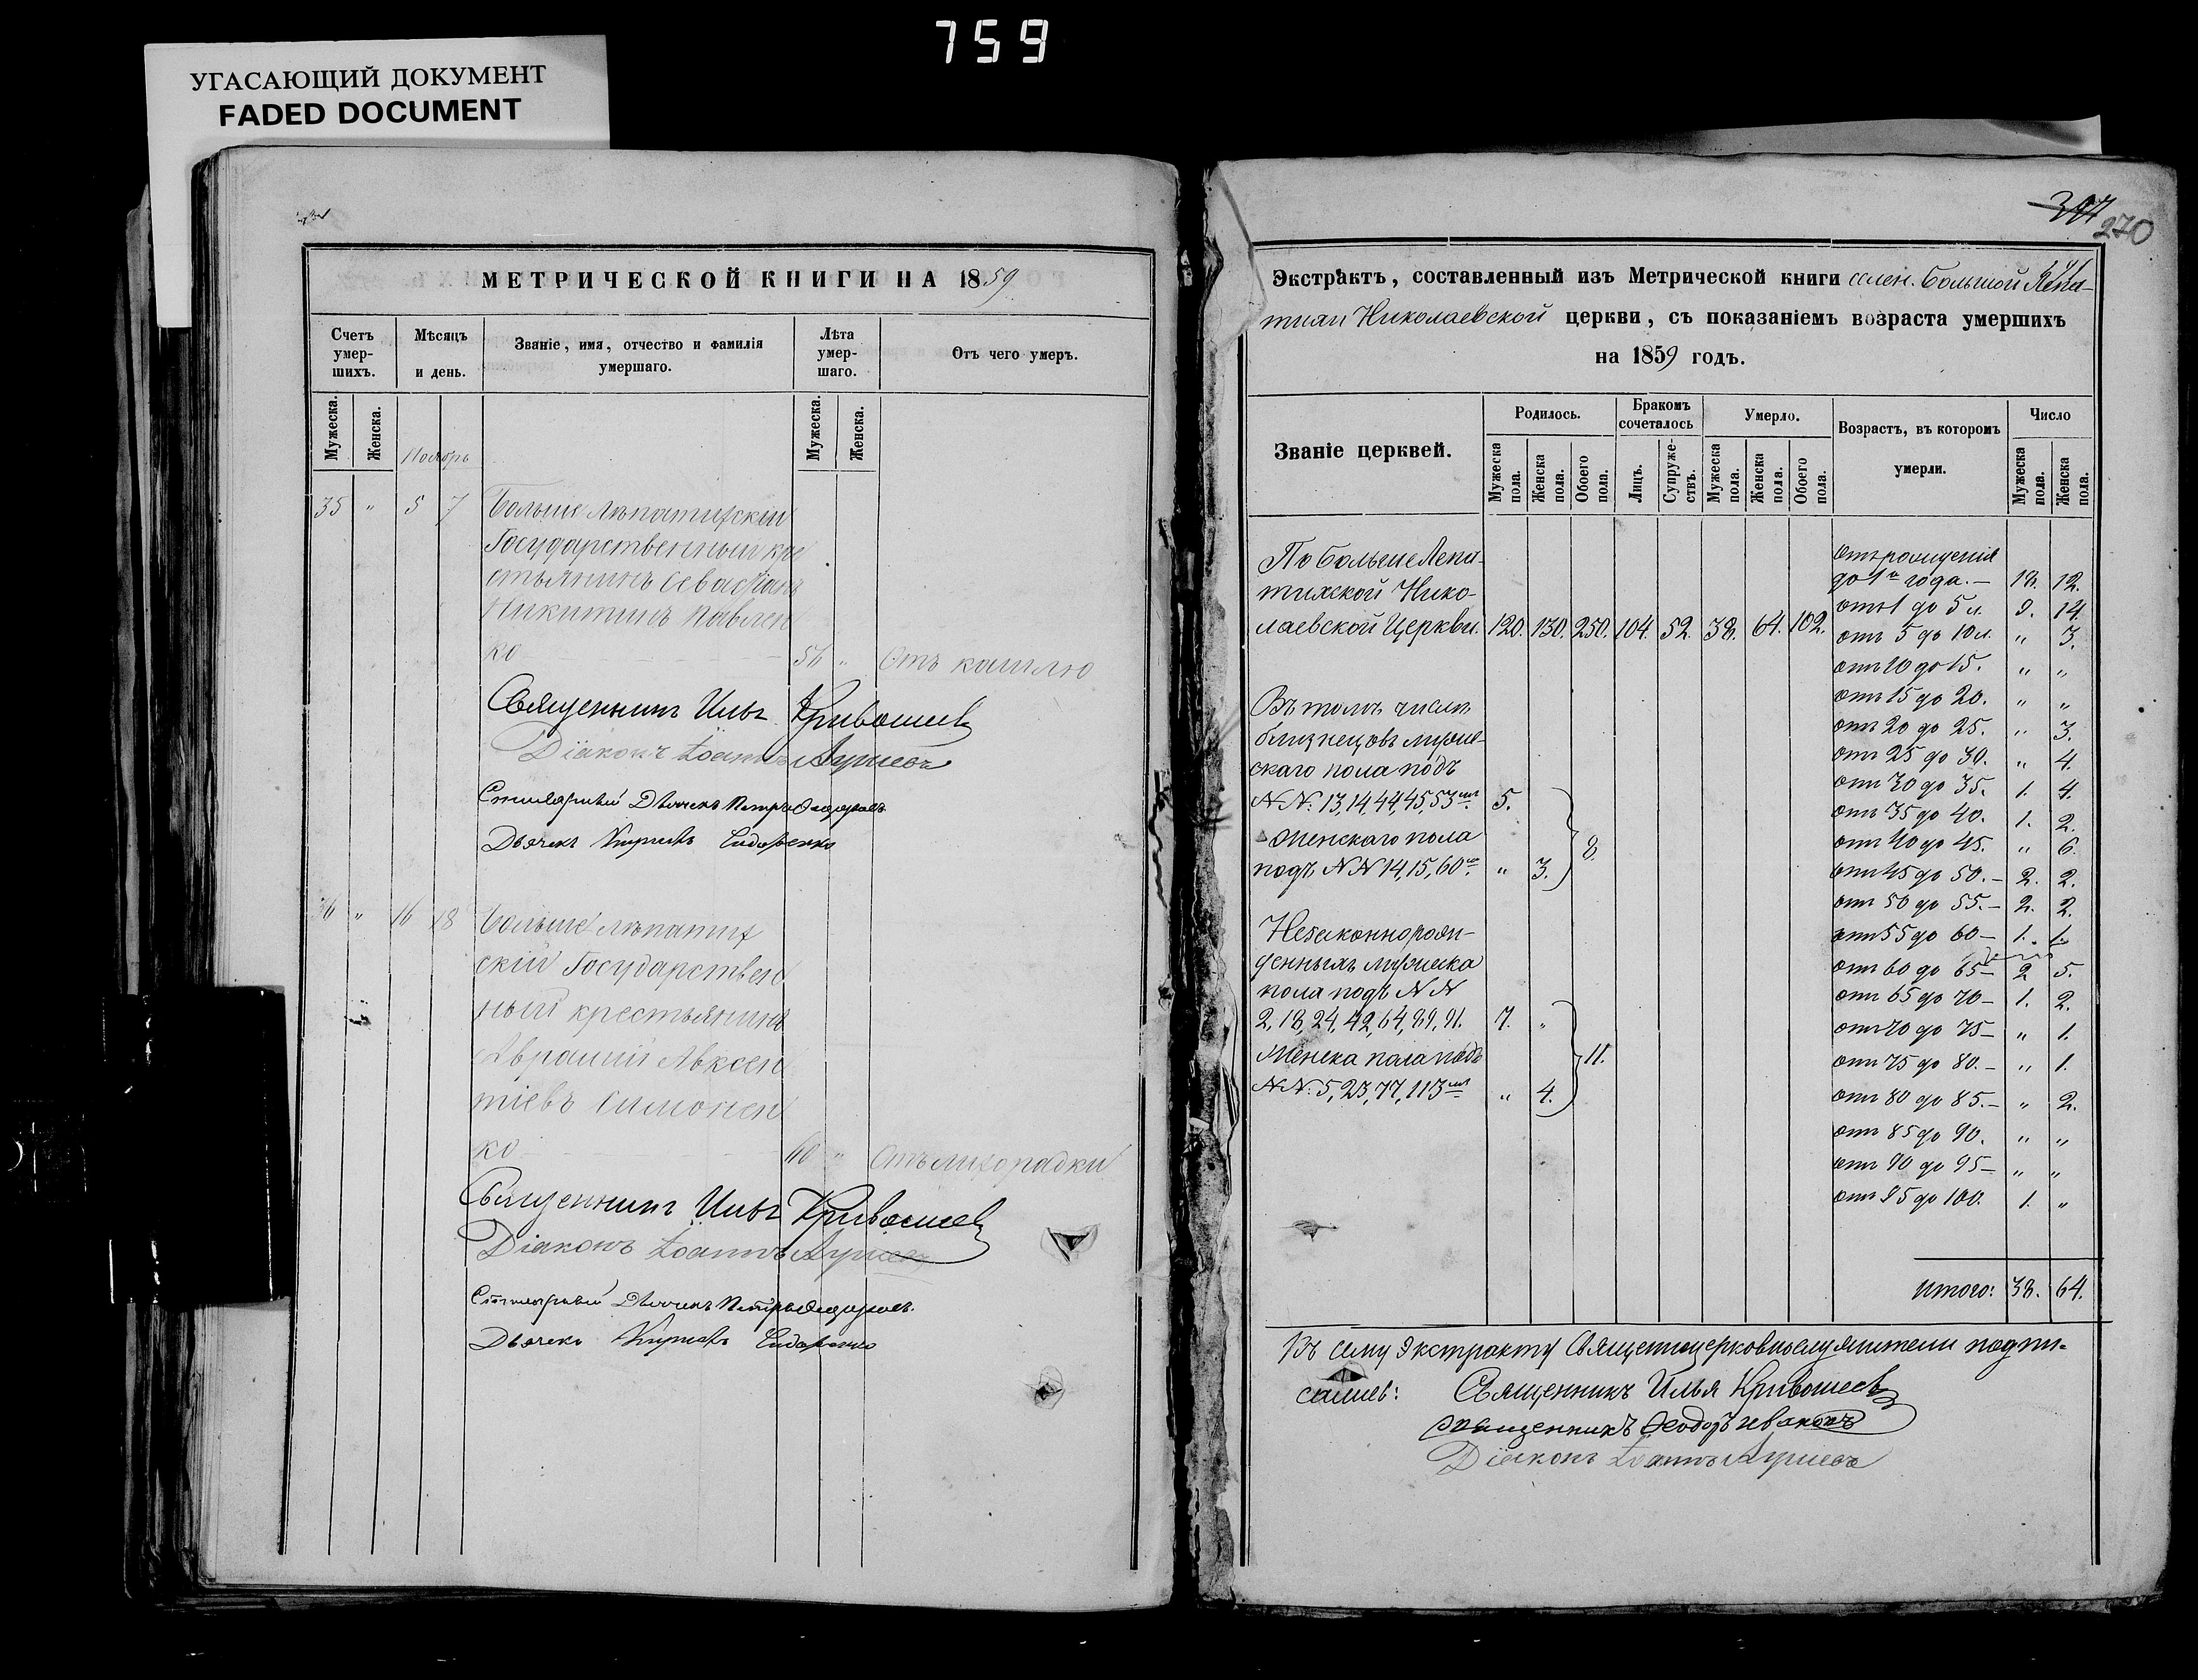 759
УГАСАЮЩИЙ ДОКУМЕНТ
FADED DOCUMENT
МЕТРИЧЕСКОЙ КНИГИ НА 1859
Счетъ умер-шихъ.
Мѣсяцъ и день.
Званіе, имя, отчество и фамилія умершаго.
Лѣта умер-шаго.
Отъ чего умеръ.
Мужеска.
Женска.
Ноябрь
Мужеска.
Женска.
35 " 5 7 Больше Лѣпатихскій
Государственный кре
стьянинъ Севастіанъ
Никитинъ Павлен
ко " Отъ кашлю
Священникъ Илья Кривошеев
Діаконъ Іоаннъ
Дьячекъ Петръ Федоровъ
Дьячекъ Сидоренко
36 " 16 18 Больше-Лѣпатих
скій Государствен
ный крестьянинъ
Авраамій Авксен
тіевъ Симонен
ко 60 " Отъ лихорадки
Священникъ Илья Кривошеев
Діаконъ Іоаннъ
Дьячекъ Петръ Федоровъ
Дьячекъ Сидоренко
270
Экстрактъ, составленный изъ Метрической книги селен. Большой Лепа-
тихи Николаевской церкви, съ показаніемъ возраста умершихъ
на 1859 годъ.
Званіе церквей.
Родилось.
Бракомъ сочеталось
Умерло.
Возрастъ, въ которомъ умерли.
Число
Мужеска пола.
Женска пола.
Обоего пола.
Лицъ.
Супруже-ствъ.
Мужеска пола.
Женска пола.
Обоего пола.
Мужеска пола.
Женска пола.
По Больше Лепа-
тихской Нико-
лаевской Церкви. 120. 130. 250. 104. 52. 38. 64. 102.
Въ томъ числѣ
близнецовъ муже-
скаго пола подъ
NN: 13, 14, 44, 45, 53мъ 5.
Женскаго пола
подъ NN 14, 15, 60ю. " 3. 8.
Незаконнорож-
денныхъ мужеска
пола подъ NN
2, 18, 24, 42, 64, 89, 91. 7. "
Женска пола подъ
NN: 5, 23, 77, 113мъ " 4. 11.
Отъ рожденія
до 1го года. – 18. 12.
отъ 1 до 5 л. 9. 14.
отъ 5 до 10 л. " 3.
отъ 10 до 15. " "
отъ 15 до 20. " "
отъ 20 до 25. " 3.
отъ 25 до 30. " 4.
отъ 30 до 35. 1. 4.
отъ 35 до 40. 1. 2.
отъ 40 до 45. " 6.
отъ 45 до 50. – 2. 2.
отъ 50 до 55. – 2. 2.
отъ 55 до 60 – 1. 1.
отъ 60 до 65 – 2 5.
отъ 65 до 70 – 1. 2.
отъ 70 до 75 – " 1.
отъ 75 до 80. – " 1.
отъ 80 до 85. – " 2.
отъ 85 до 90. " "
отъ 90 до 95 – " "
отъ 95 до 100. 1. "
Итого: 38. 64.
Къ сему Экстракту Священноцерковнослужители подпи-
сались: Священникъ Илья Кривошеев
Священникъ Феодоръ Ивановъ
Діаконъ Іоаннъ